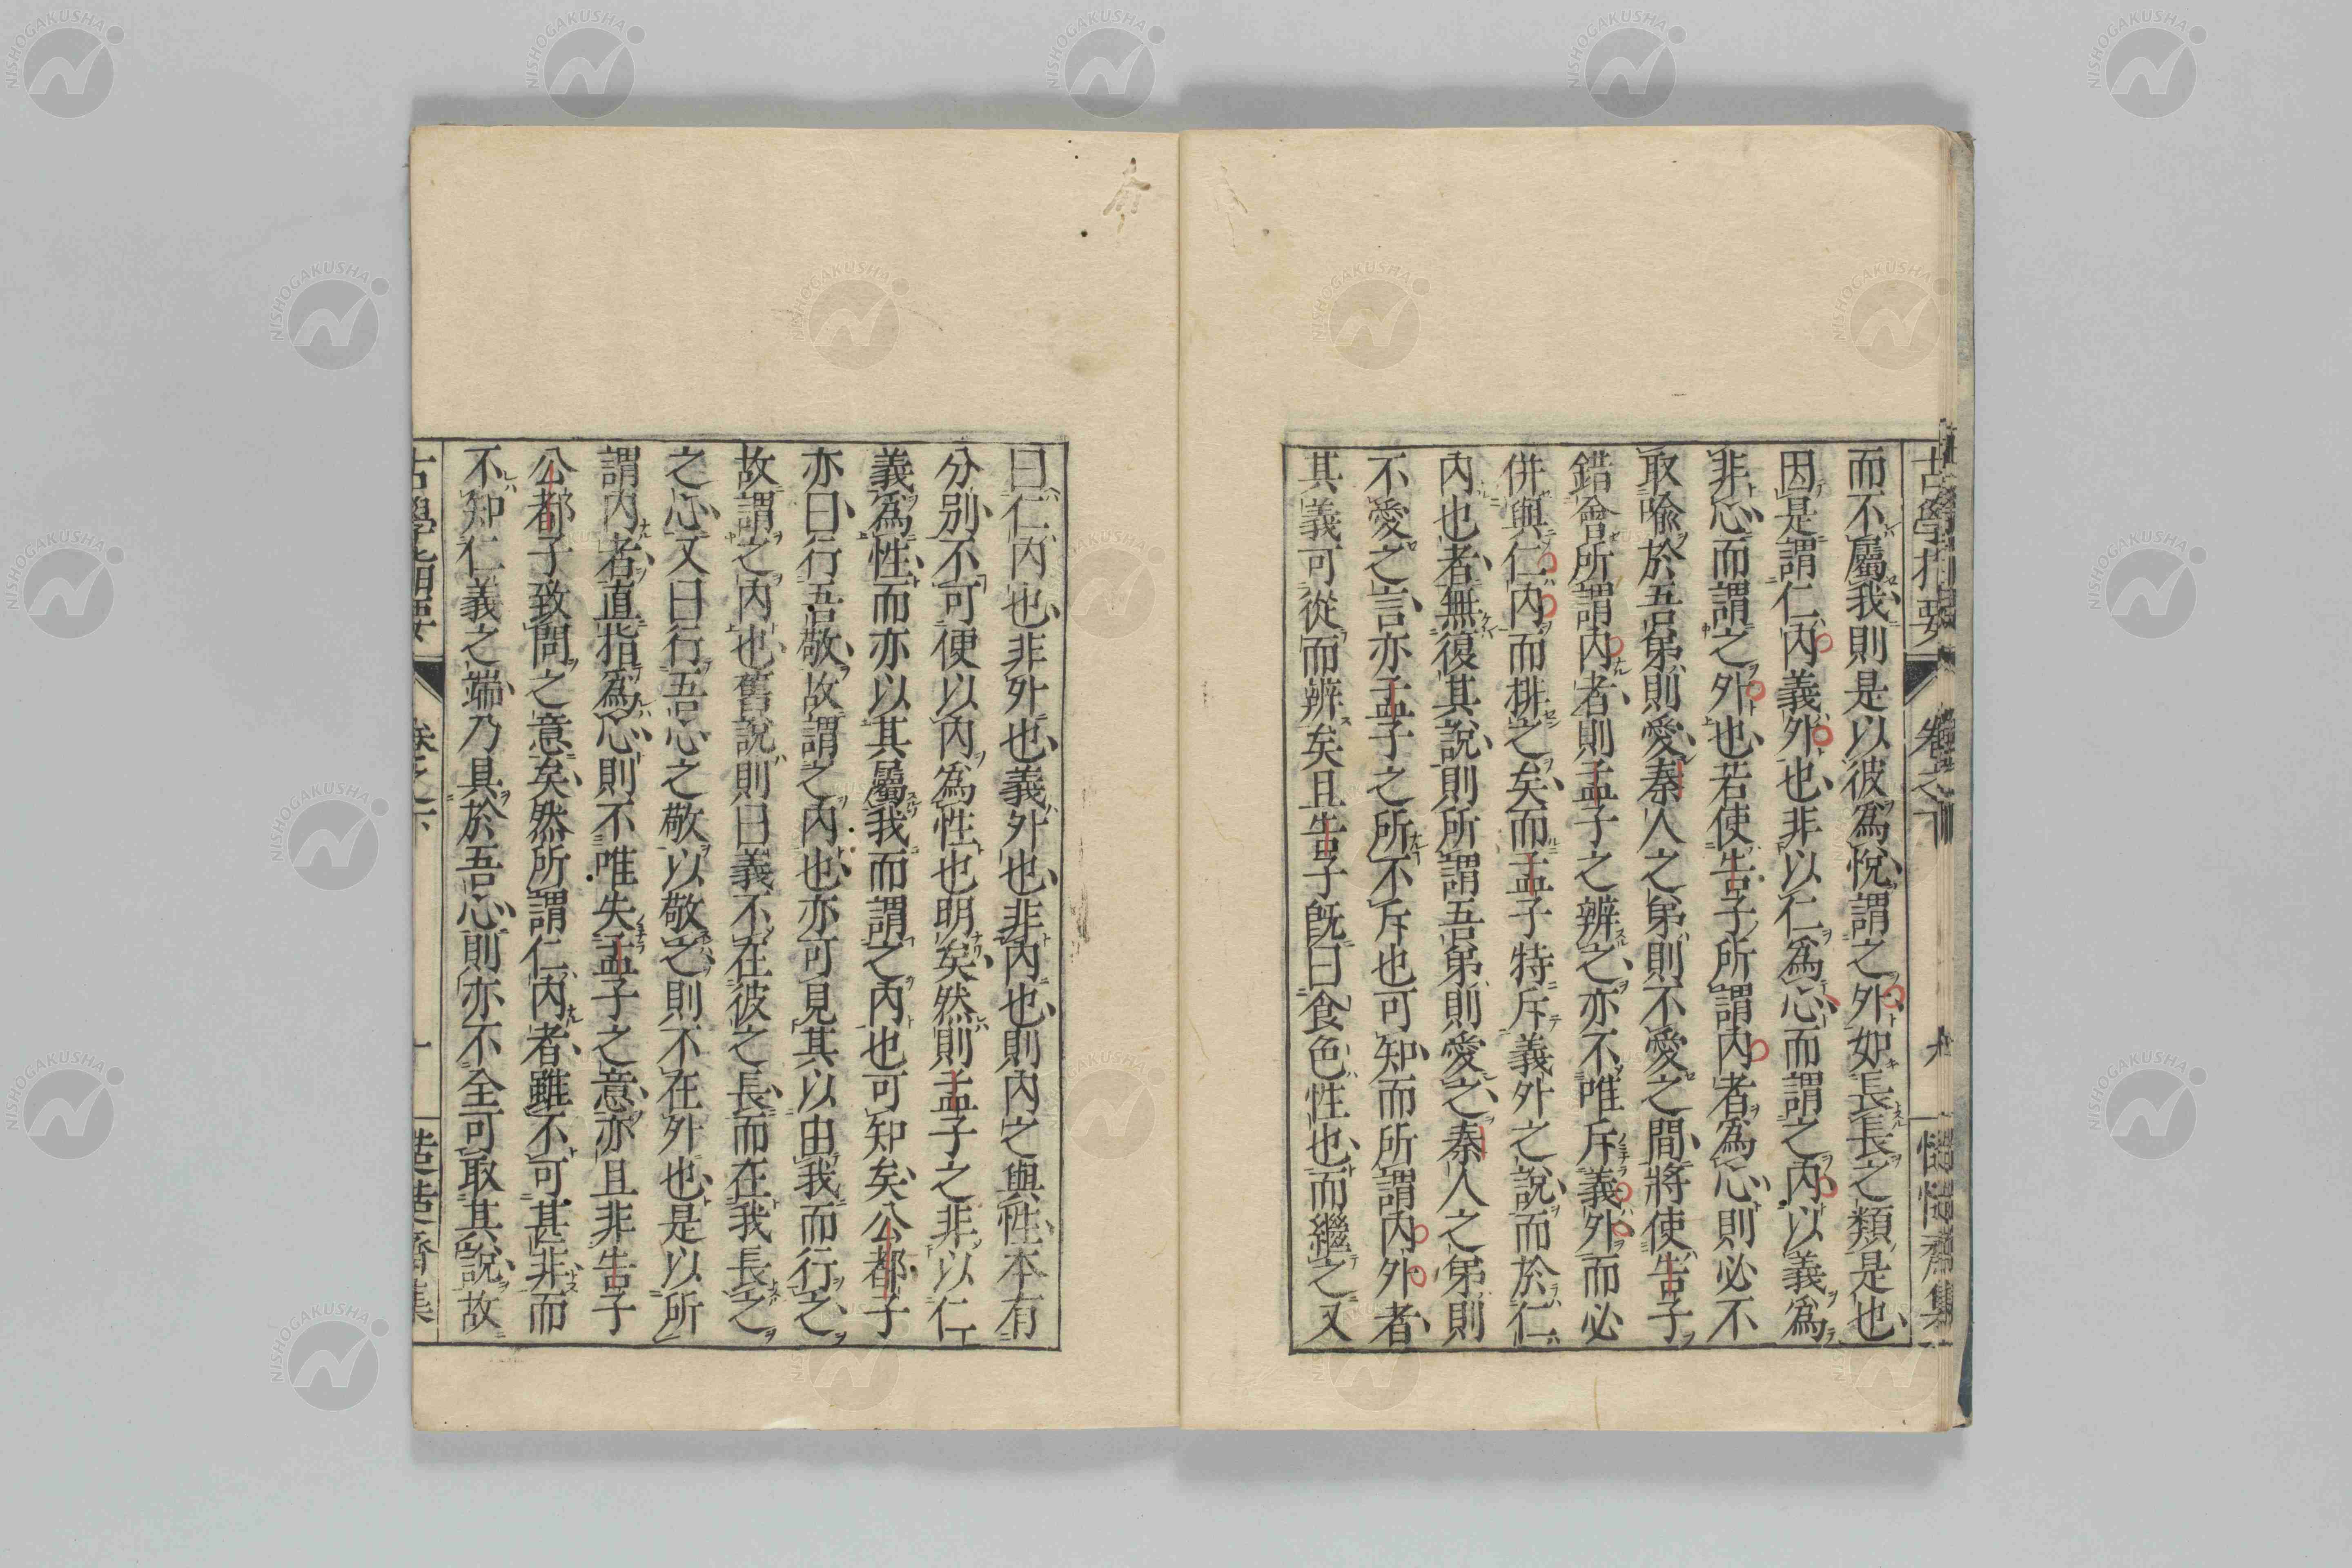 而不屬我則是以彼為悅謂之外如長長之類是也
因是謂仁內義外也非以仁為心而謂之內以義為
非心而謂之外也若使告子所謂內者為心則必不
取喩於吾弟則愛秦人之弟則不愛之間將使告子
錯會所謂內者則孟子之辨之亦不唯斥義外而必
併與仁內而排之矣而孟子特斥義外之說而於仁
內也者無復其說則所謂吾弟則愛之秦人之弟則
不愛之言亦孟子之所不斥也可知而所謂內外者
其義可從而辨矣且告子旣曰食色性也而繼之又
曰仁內也非外也義外也非內也則內之與性本有
分別不可便以內為性也明矣然則孟子之非以仁
義為性而亦以其屬我而謂之內也可知矣公都子
亦曰行吾敬故謂之內也亦可見其以由我而行之
故謂之內也舊說則曰義不在彼之長而在我長之
之心又曰行吾心之敬以敬之則不在外也是以所
謂內者直指為心則不唯失孟子之意亦且非告子
公都子致問之意矣然所謂仁內者雖不可甚非而
不知仁義之端乃具於吾心則亦不全可取其說故
古學指要 卷之下 十
NISHOGAKUSHA